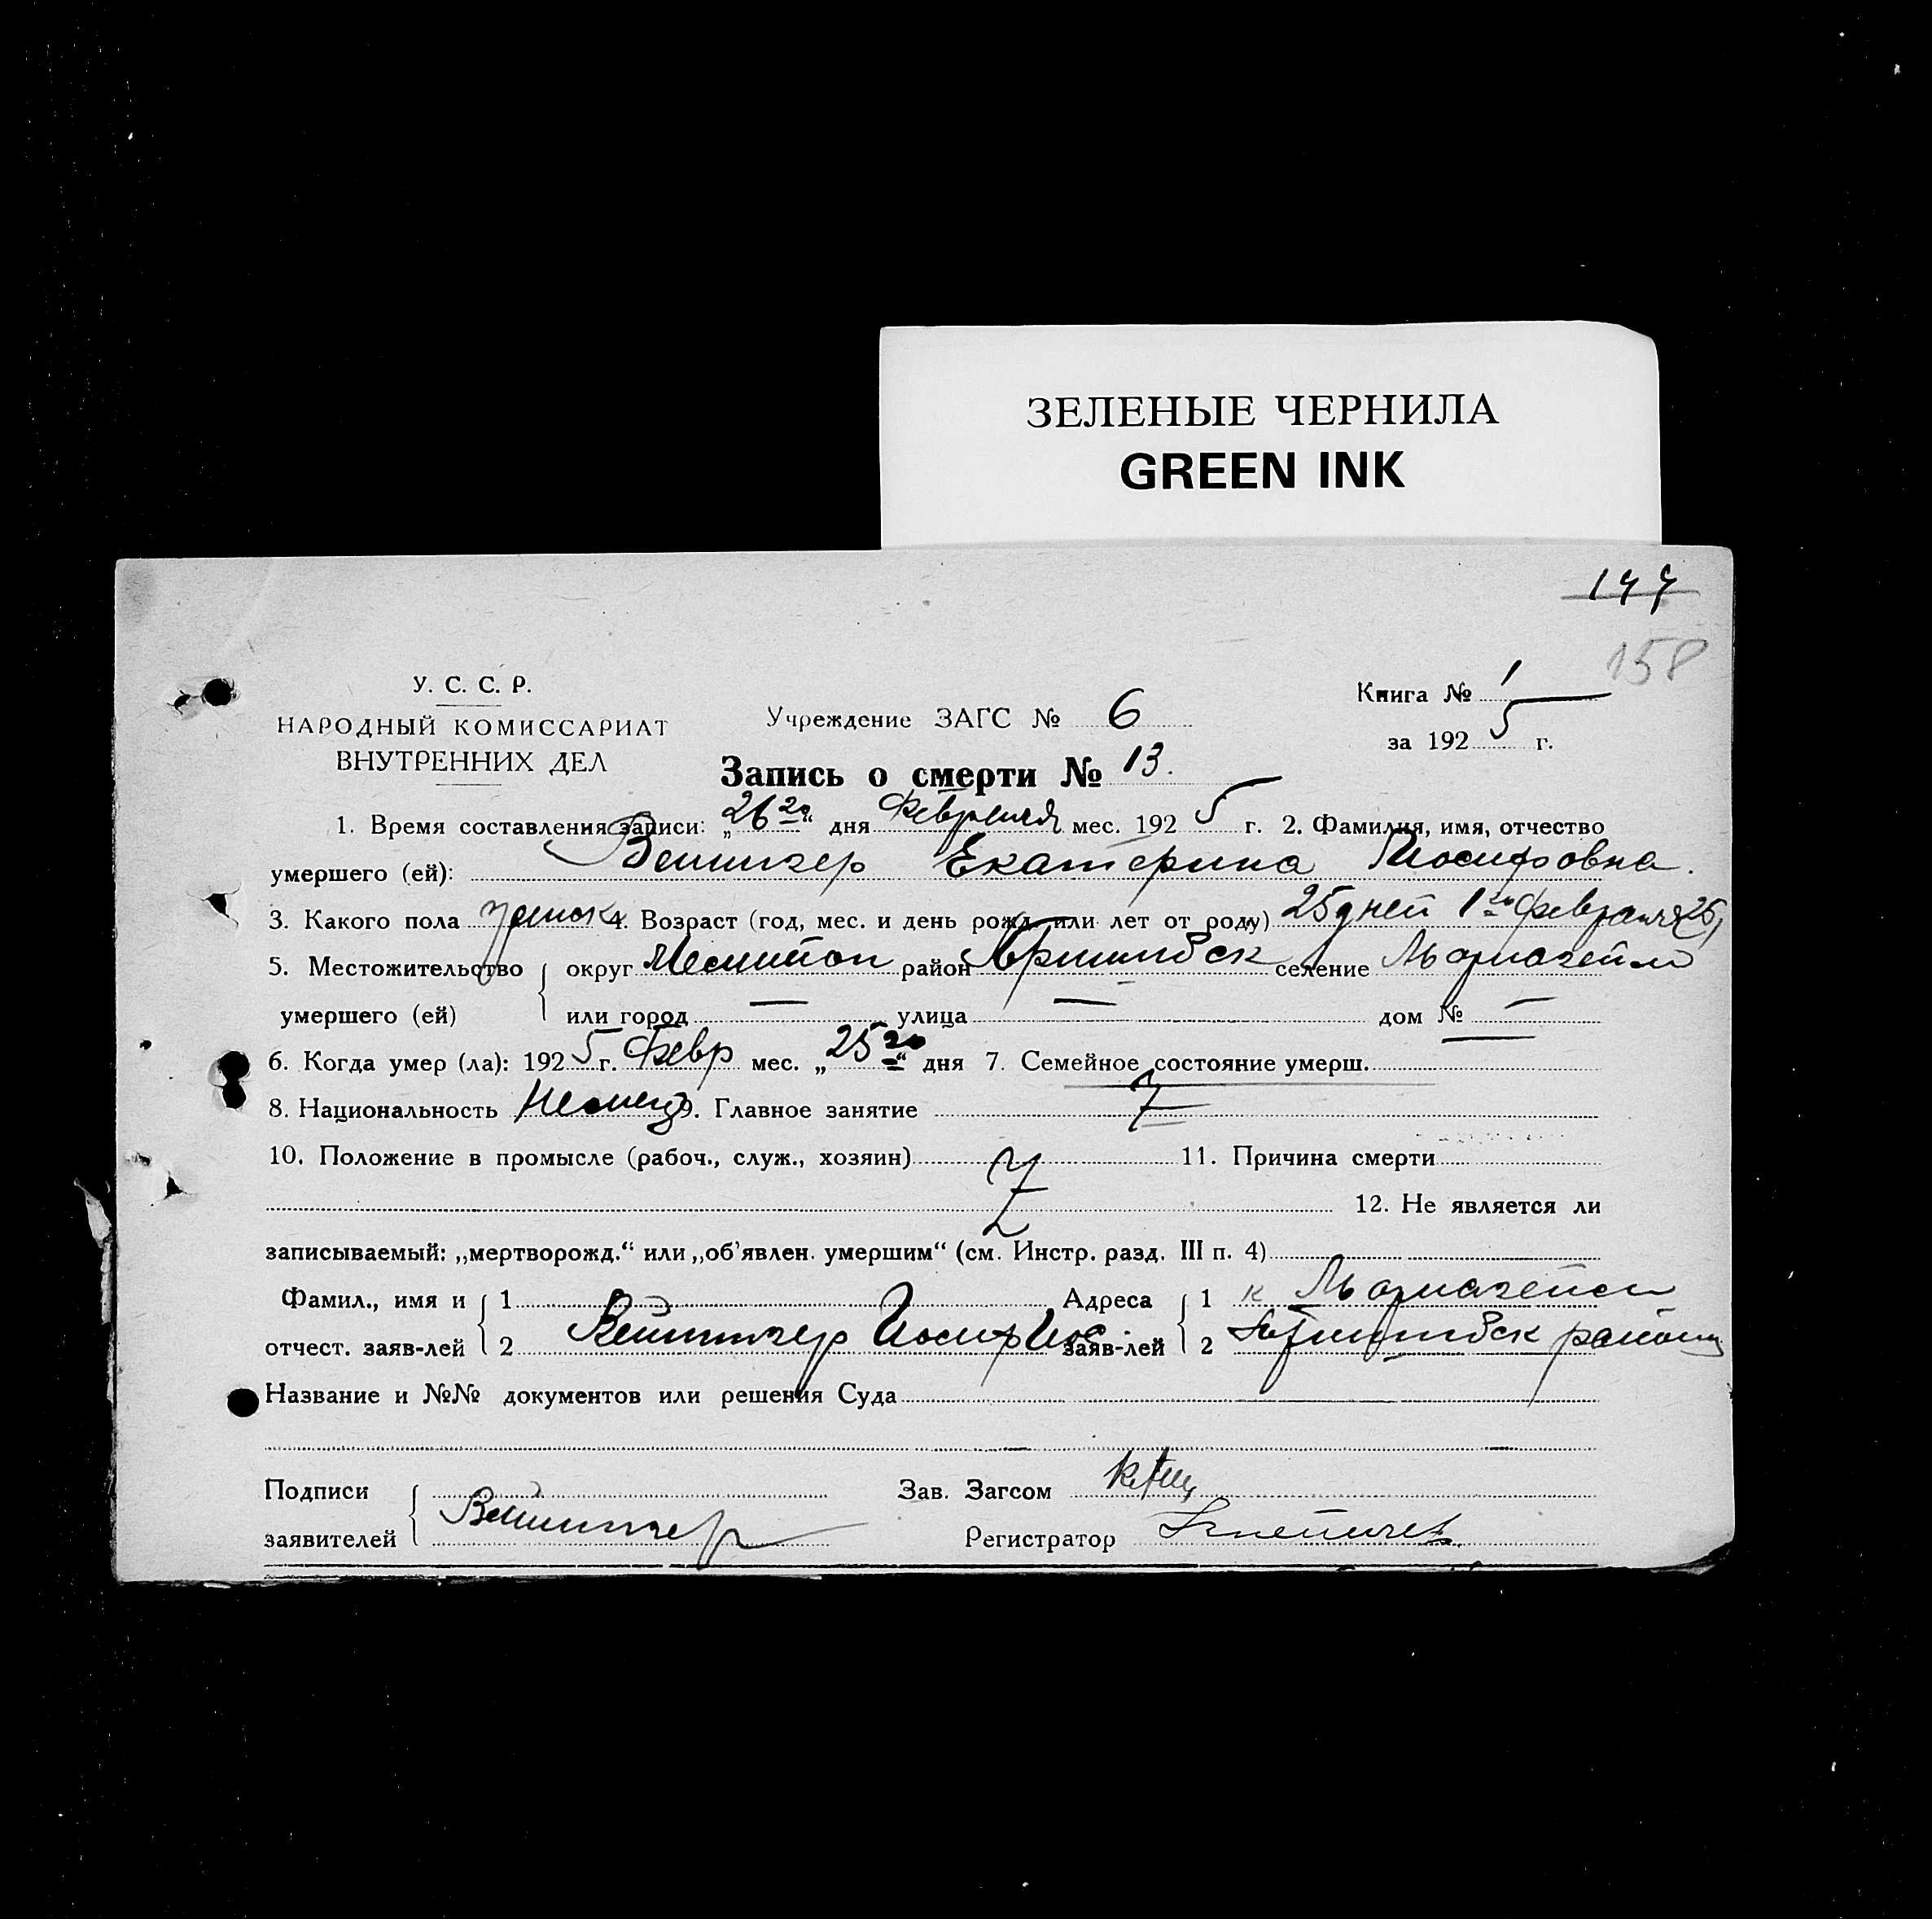 ЗЕЛЕНЫЕ ЧЕРНИЛА
GREEN INK
147
158
У. С. С. Р.
НАРОДНЫЙ КОМИССАРИАТ
ВНУТРЕННИХ ДЕЛ
Учреждение ЗАГС № 6
Книга № 1
за 1925 г.
Запись о смерти № 13.
1. Время составления записи: „26го“ дня Февраля мес. 1925 г. 2. Фамилия, имя, отчество
умершего (ей): Вейнингер Екатерина Иосифовна.
3. Какого пола женск 4. Возраст (год, мес. и день рожд. или лет от роду) 25 дней 1го Февраля 25
5. Местожительство округ Мелитоп район селение
умершего (ей) или город — улица — дом № —
6. Когда умер (ла): 1925 г. Февр мес. „25го“ дня 7. Семейное состояние умерш.
8. Национальность Немец 9. Главное занятие
10. Положение в промысле (рабоч., служ., хозяин) 11. Причина смерти
12. Не является ли
записываемый: „мертворожд.“ или „об'явлен. умершим“ (см. Инстр. разд. III п. 4)
Фамил., имя и 1 Адреса 1 к
отчест. заяв-лей 2 Вейнингер Иосиф Иос. заяв-лей 2 район
Название и №№ документов или решения Суда
Подписи Зав. Загсом
заявителей Вейнингер Регистратор